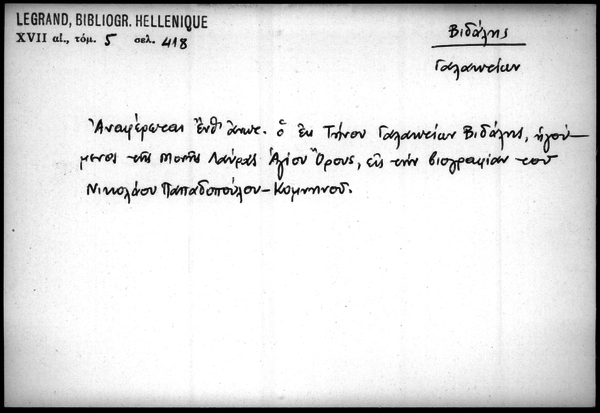 LEGRAND, BIBLIOGR. HELLENIQUE
XVII αἰ., τόμ. 5 σελ. 418
Βιδάλης
Γαλακτίων
Ἀναφέρεται ἔνθ' ἀνωτ. ὁ ἐκ Τήνου Γαλακτίων Βιδάλης, ἡγού-
μενος τῆς Μονῆς Λαύρας Ἁγίου Ὄρους, εἰς τὴν βιογραφίαν τοῦ
Νικολάου Παπαδοπούλου-Κομνηνοῦ.